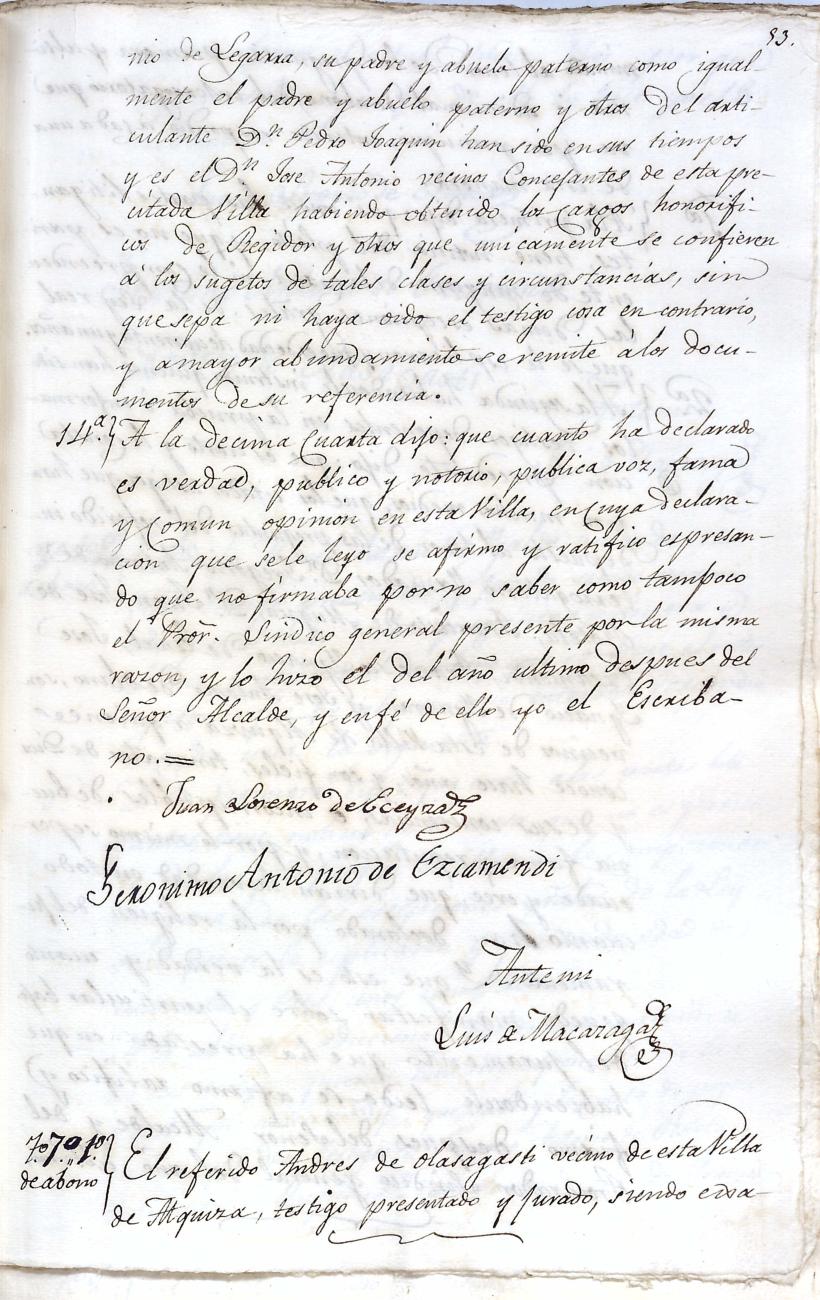 53.
nio de Legarra, su padre y abuelo paterno como igual-
mente el padre y abuelo paterno y otros del arti-
culante Dn. Pedro Joaquin han sido en sus tiempos
y es el Dn Jose Antonio vecinos Concejantes de esta pre-
citada Villa habiendo obtenido los Cargos honorifi-
cos de Regidor y otros que unicamente se confieren
á los sugetos de tales clases y circunstancias, sin
que sepa ni haya oido el testigo cosa en contrario,
y amayor abundamiento se remite á los docu-
mentos de su referencia.
14.a} A la decima Cuarta dijo: que cuanto ha declarado
es verdad, publico y notorio, publica voz, fama
y Comun opinion en esta Villa, en cuya declara-
cion que sele leyo se afirmo y ratifico espresan-
do que no firmaba por no saber como tampoco
el Pror. Sindico general presente por la misma
razon, y lo hizo el del año ultimo despues del
Señor Alcalde, y enfé de ello yo el Escriba-
no.=
Juan Lorenzo de Eceyza
Geronimo Antonio de Ezcamendi
Antemi
Luis de Macazaga
7.o 7.o 1.o
de abono} El referido Andres de Olasagasti vecino de esta Villa
de Alquiza, testigo presentado y jurado, siendo exsa-